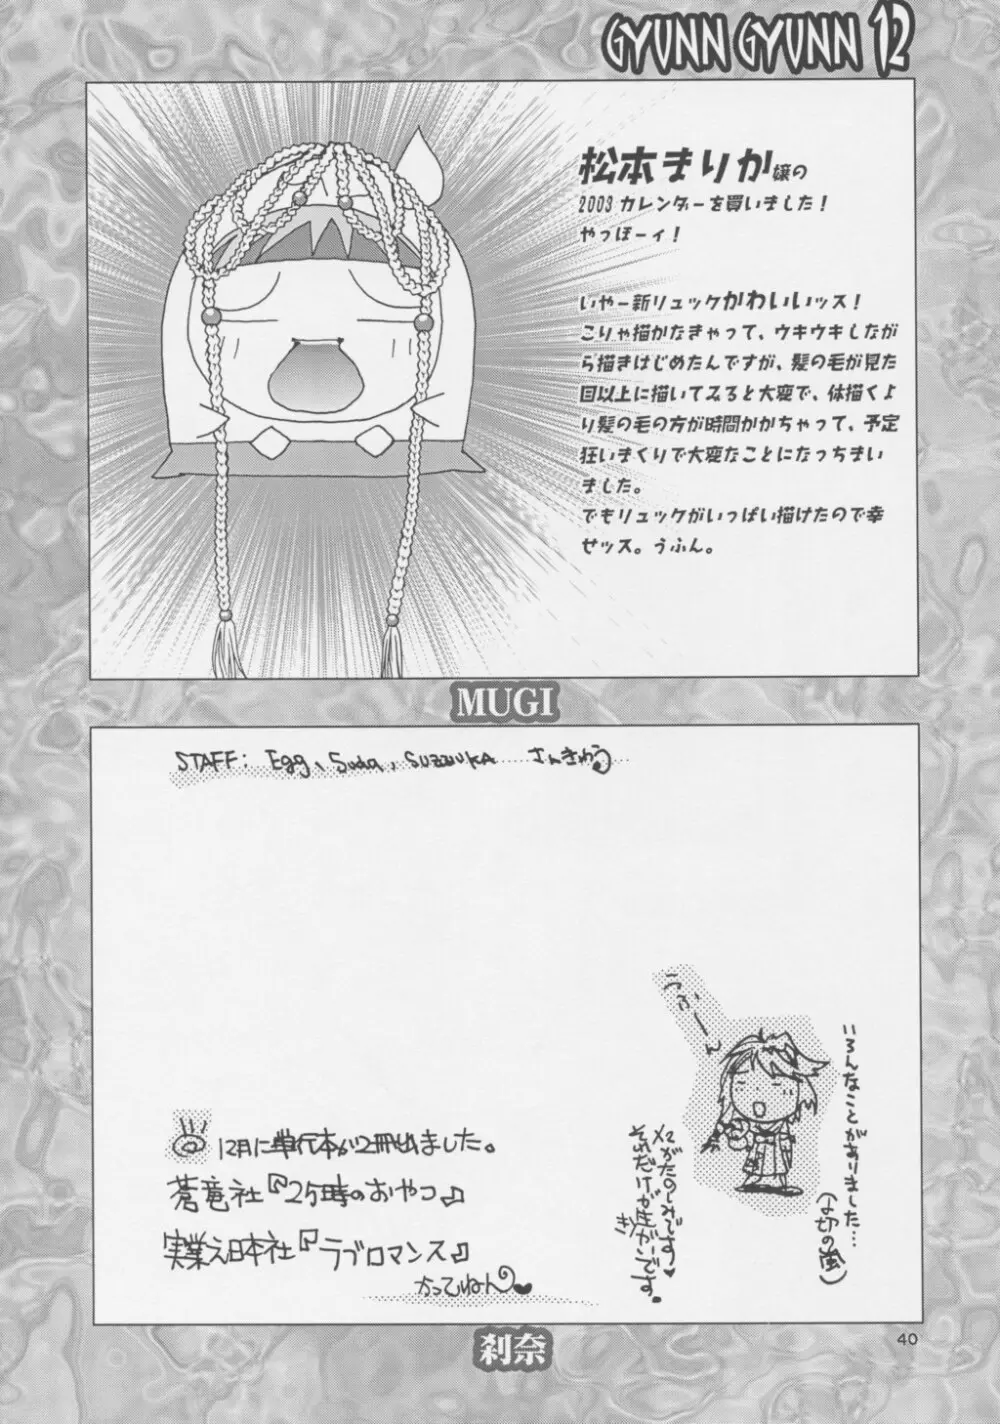 GYUNN GYUNN 12
松本まりか嬢の
2003 カレンダーを買いました!
やっほーィ!
いやー新リュックかわいいッス!
こりゃ描かなきゃって、ウキウキしなが
ら描きはじめたんですが、髪の毛が見た
目以上に描いてみると大変で、体描くよ
り髪の毛の方が時間かかちゃって、予定
狂いまくりで大変なことになっちまい
ました。
でもリュックがいっぱい描けたので幸
せッス。うふん。
MUGI
STAFF: Egg、Suda、SUZZUKA ......さんきゅう
うふーん
いろんなことがありました…
(〆切の嵐)
X2がたのしみでーす♥
それだけが生きがいでーす。
12月に単行本が2冊出ました。
蒼竜社『25時のおやつ』
実業之日本社『ラブロマンス』
かってねん♥
刹奈
40